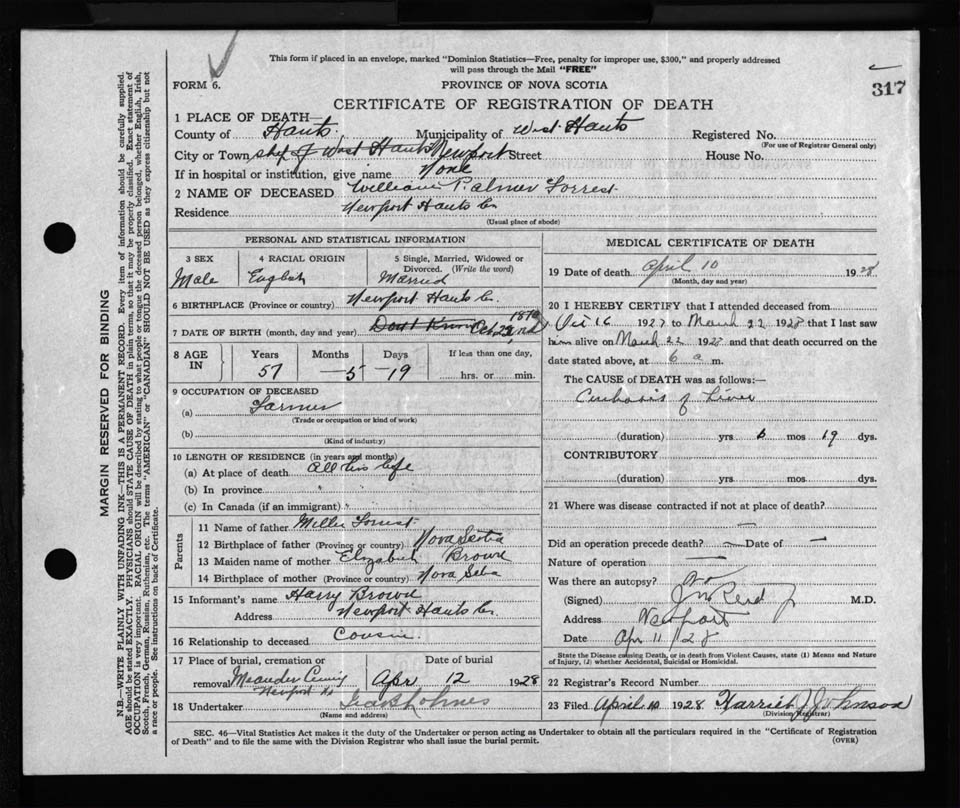 This form if placed in an envelope, marked "Dominion Statistics—Free, penalty for improper use, $300," and properly addressed
will pass through the Mail "FREE"
FORM 6.
PROVINCE OF NOVA SCOTIA
317
CERTIFICATE OF REGISTRATION OF DEATH
1 PLACE OF DEATH—
County of Hants. Municipality of West Hants Registered No.
(For use of Registrar General only)
City or Town of West Hants Newport Street House No.
If in hospital or institution, give name None
2 NAME OF DECEASED William Palmer Forrest
Residence Newport Hants Co.
(Usual place of abode)
PERSONAL AND STATISTICAL INFORMATION
3 SEX 4 RACIAL ORIGIN 5 Single, Married, Widowed or
Divorced. (Write the word)
Male English Married
6 BIRTHPLACE (Province or country) Newport Hants Co.
7 DATE OF BIRTH (month, day and year) Dont Know Oct 22nd 1870
8 AGE IN Years Months Days If less than one day,
57 —5 —19 hrs. or min.
9 OCCUPATION OF DECEASED
(a) Farmer
(Trade or occupation or kind of work)
(b)
(Kind of industry)
10 LENGTH OF RESIDENCE (in years and months)
(a) At place of death All his life
(b) In province "
(c) In Canada (if an immigrant) "
Parents
11 Name of father Forrest
12 Birthplace of father (Province or country) Nova Scotia
13 Maiden name of mother Elizabeth Brown
14 Birthplace of mother (Province or country) Nova
15 Informant's name Harry Brown
Address Newport Hants Co.
16 Relationship to deceased Cousin
17 Place of burial, cremation or Date of burial
removal Meander Apr 12 1928
Newport
18 Undertaker
(Name and address)
MEDICAL CERTIFICATE OF DEATH
19 Date of death April 10 1928
(Month, day and year)
20 I HEREBY CERTIFY that I attended deceased from
Oct 16 1927 to March 22 1928 that I last saw
him alive on March 22 1928 and that death occurred on the
date stated above, at 6 a m.
The CAUSE of DEATH was as follows:—
Cirrhosis of Liver
(duration) yrs 6 mos 19 dys.
CONTRIBUTORY
(duration) yrs. mos. dys.
21 Where was disease contracted if not at place of death?
—
Did an operation precede death? — Date of —
Nature of operation —
Was there an autopsy? No
(Signed) J W Reid Jr M.D.
Address Newport
Date Apr 11/28
State the Disease causing Death, or in death from Violent Causes, state (1) Means and Nature
of Injury, (2) whether Accidental, Suicidal or Homicidal.
22 Registrar's Record Number
23 Filed April 1928. Harriet J Johnson
(Division Registrar)
SEC. 46—Vital Statistics Act makes it the duty of the Undertaker or person acting as Undertaker to obtain all the particulars required in the "Certificate of Registration
of Death" and to file the same with the Division Registrar who shall issue the burial permit.
(OVER)
MARGIN RESERVED FOR BINDING
N.B.—WRITE PLAINLY WITH UNFADING INK—THIS IS A PERMANENT RECORD. Every item of information should be carefully supplied.
AGE should be stated EXACTLY. PHYSICIANS should STATE CAUSE OF DEATH in plain terms, so that it may be properly classified. Exact statement of
OCCUPATION is very important. RACIAL ORIGIN will be described by stating to what people or tongue the deceased person belonged, whether English, Irish,
Scotch, French, German, Russian, Ruthenian, etc. The terms "AMERICAN" or "CANADIAN" SHOULD NOT BE USED as they express citizenship but not
a race or people. See instructions on back of Certificate.